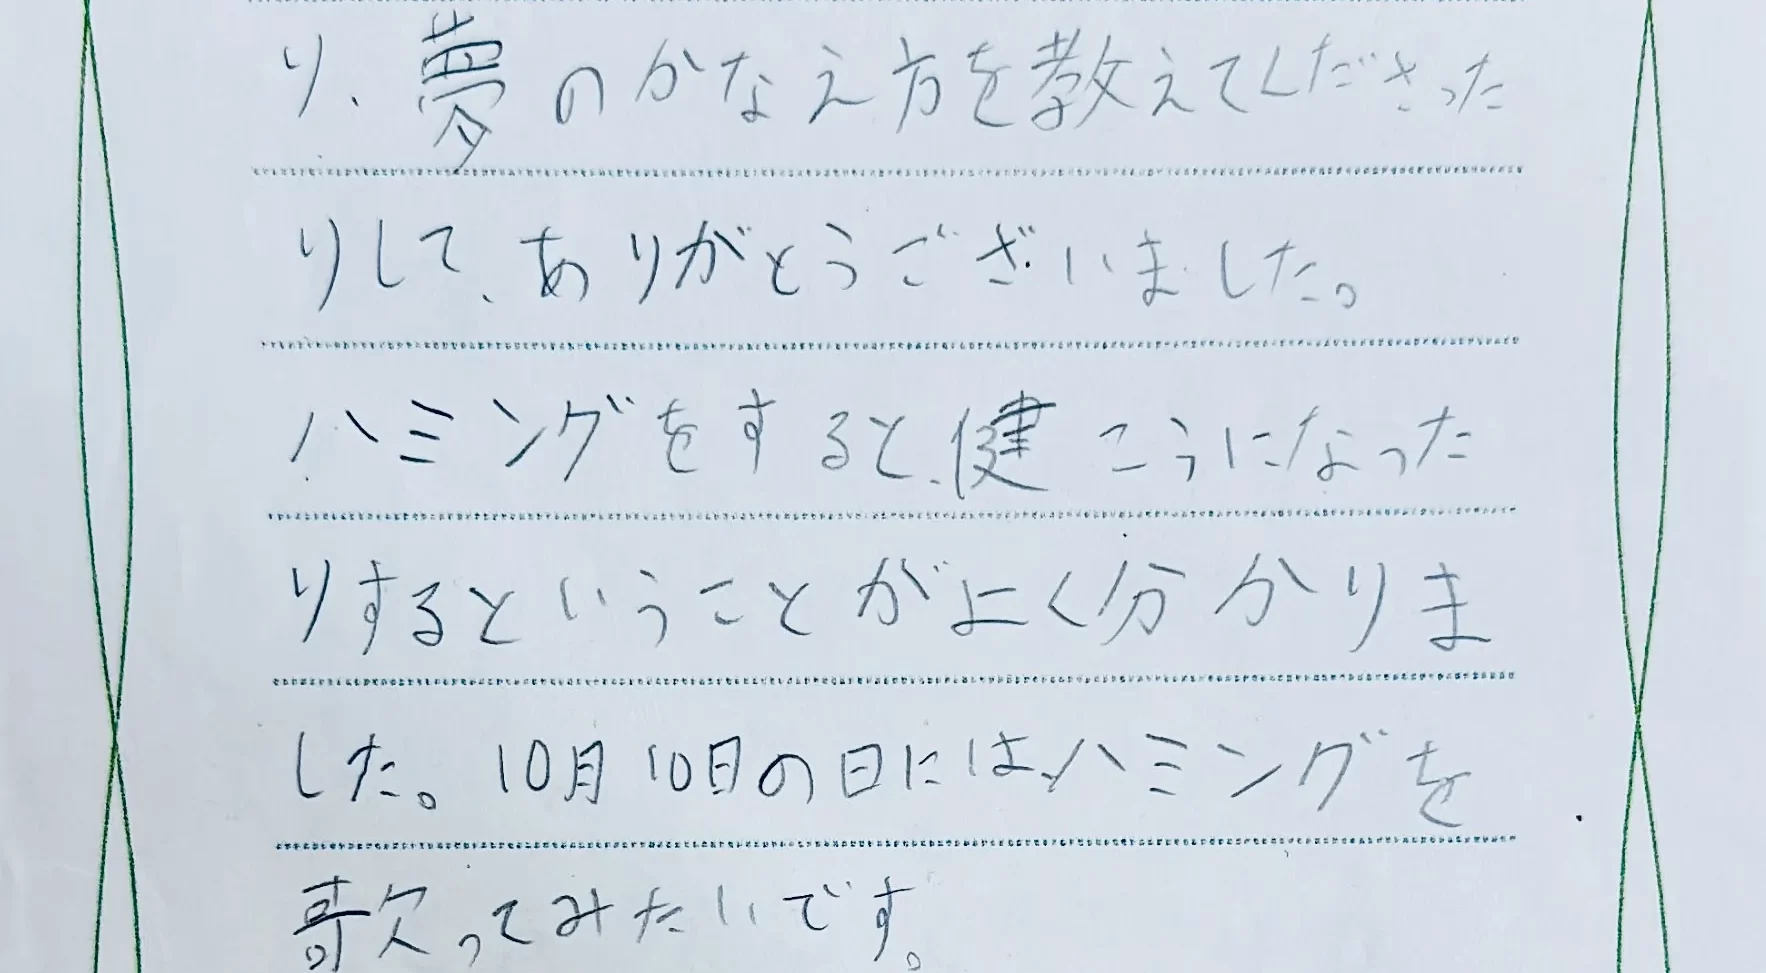 り、夢のかなえ方を教えてくださった
りして、ありがとうございました。
ハミングをすると、健こうになった
りするということがよく分かりま
した。10月10日の日には、ハミングを
歌ってみたいです。